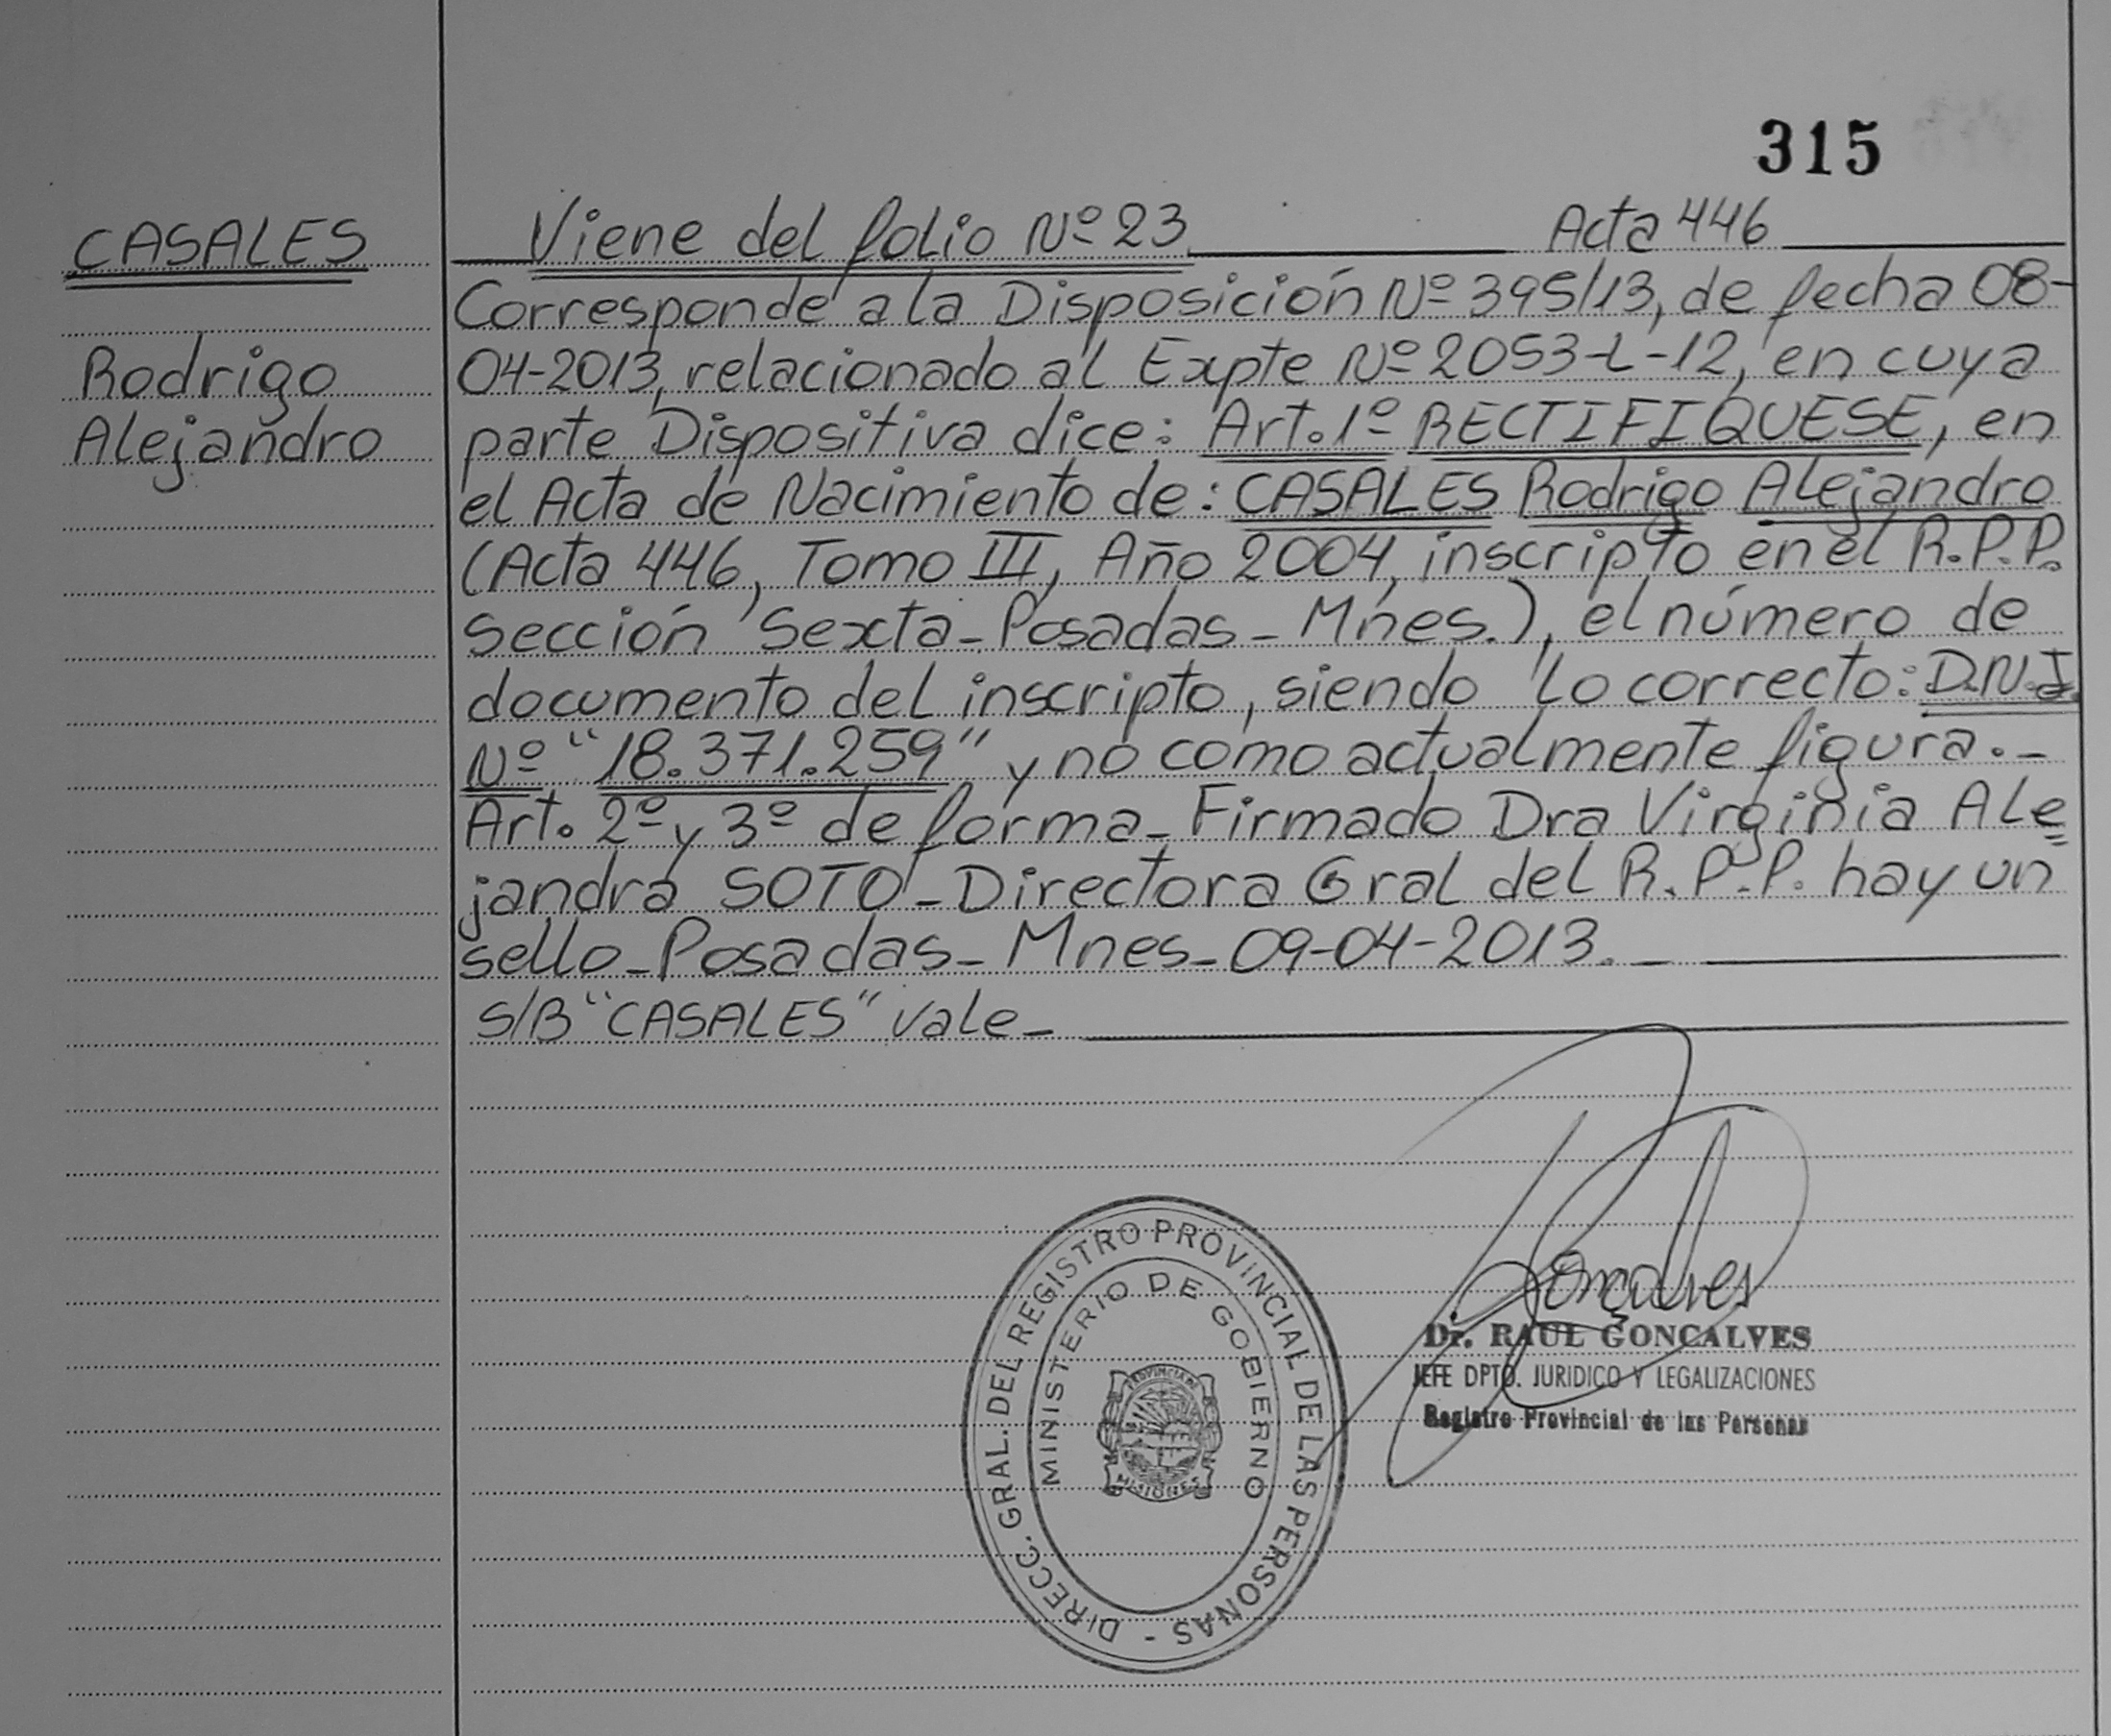 315
CASALES
Rodrigo
Alejandro
Viene del folio Nº 23 Acta 446
Corresponde a la Disposición Nº 395/13, de fecha 08-
04-2013, relacionado al Expte Nº 2053-L-12, en cuya
parte Dispositiva dice: Art. 1º RECTIFIQUESE, en
el Acta de Nacimiento de: CASALES Rodrigo Alejandro
(Acta 446, Tomo III, Año 2004, inscripto en el R.P.P.
Sección Sexta - Posadas - Mnes.), el número de
documento del inscripto, siendo lo correcto: D.N.I.
Nº "18.371.259" y no como actualmente figura. -
Art. 2º y 3º de forma - Firmado Dra Virginia Ale
jandra SOTO - Directora Gral del R.P.P. hay un
sello - Posadas - Mnes - 09-04-2013. -
S/B "CASALES" vale -
DIRECC. GRAL. DEL REGISTRO PROVINCIAL DE LAS PERSONAS -
MINISTERIO DE GOBIERNO
PROVINCIA DE
MISIONES
Gonçalves
Dr. RAUL GONCALVES
JEFE DPTO. JURIDICO Y LEGALIZACIONES
Registro Provincial de las Personas